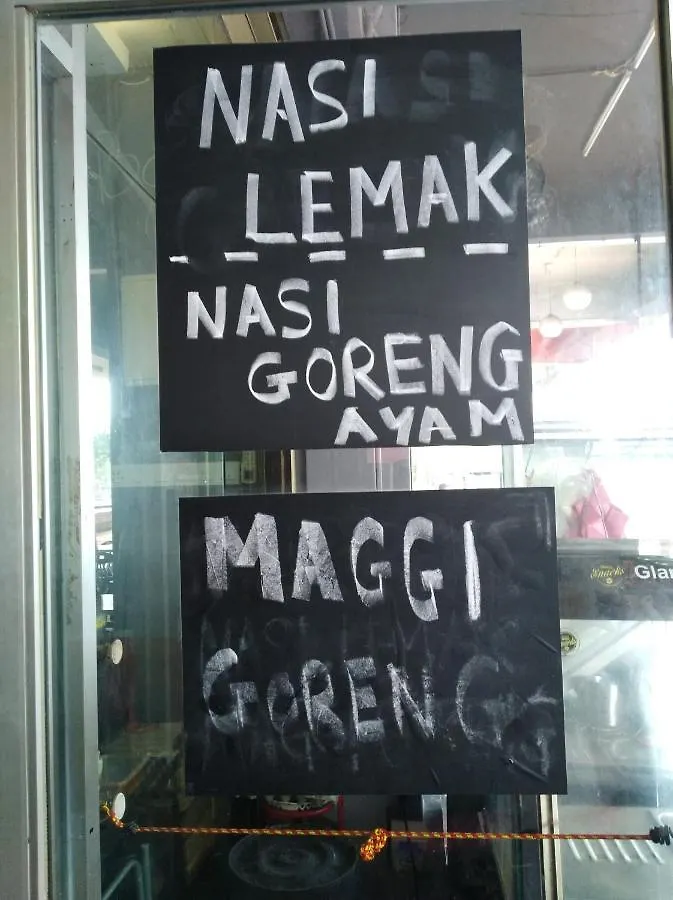 NASI
LEMAK
NASI
GORENG
AYAM
MAGGI
GORENG
Snacks
Glar